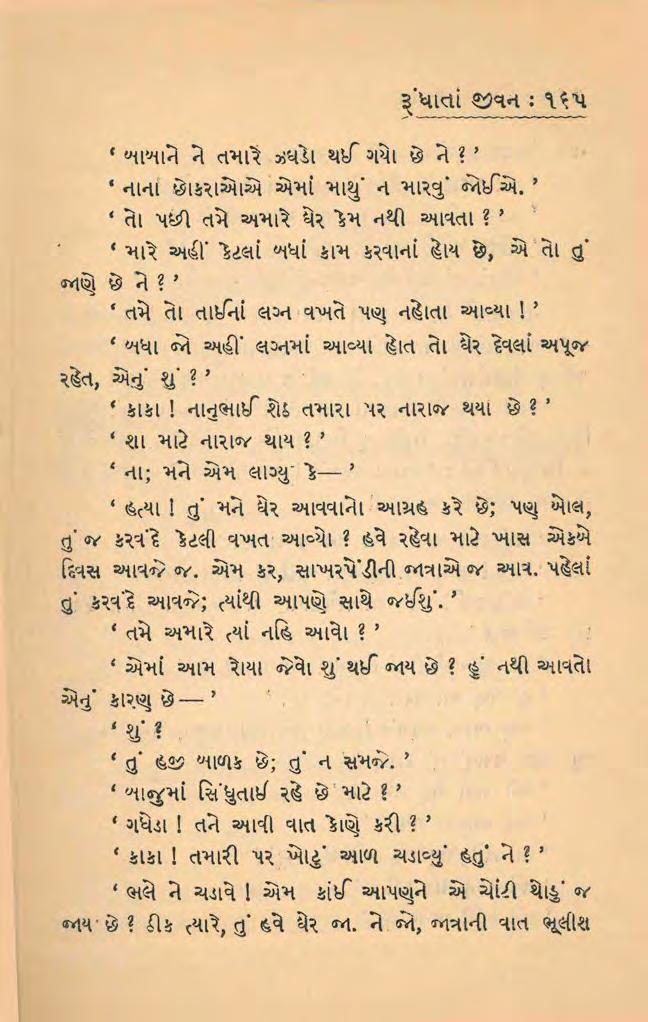 રૂંધાતાં જીવન : ૧૬૫
‘ બાબાને ને તમારે ઝઘડો થઈ ગયો છે ને ? ’
‘ નાના છોકરાઓએ એમાં માથું ન મારવું જોઈએ. ’
‘ તો પછી તમે અમારે ઘેર કેમ નથી આવતા ? ’
‘ મારે અહીં કેટલાં બધાં કામ કરવાનાં હોય છે, એ તો તું
જાણે છે ને ? ’
‘ તમે તો તાઈનાં લગ્ન વખતે પણ નહોતા આવ્યા ! ’
‘ બધા જો અહીં લગ્નમાં આવ્યા હોત તો ઘેર દેવલાં અપૂજ
રહેત, એનું શું ? ’
‘ કાકા ! નાનુભાઈ શેઠ તમારા પર નારાજ થયા છે ? ’
‘ શા માટે નારાજ થાય ? ’
‘ ના; મને એમ લાગ્યુ કે— ’
‘ હત્યા ! તું મને ઘેર આવવાનો આગ્રહ કરે છે; પણ બોલ,
તું જ કરવંદે કેટલી વખત આવ્યો ? હવે રહેવા માટે ખાસ એકબે
દિવસ આવજે જ. એમ કર, સાખરપેંડીની જાત્રાએ જ આવ. પહેલાં
તું કરવંદે આવજે; ત્યાંથી આપણે સાથે જઈશું. ’
‘ તમે અમારે ત્યાં નહિ આવો ? ’
‘ એમાં આમ રોયા જેવો શું થઈ જાય છે ? હું નથી આવતો
એનું કારણ છે — ’
‘ શું ?
‘ તું હજી બાળક છે; તું ન સમજે. ’
‘ બાજુમાં સિંધુતાઈ રહે છે માટે ? ’
‘ ગધેડા ! તને આવી વાત કોણે કરી ? ’
‘ કાકા ! તમારી પર ખોટું આળ ચડાવ્યું હતું ને ? ’
‘ ભલે ને ચડાવે ! એમ કાંઈ આપણને એ ચોંટી થોડું જ
જાય છે ? ઠીક ત્યારે, તું હવે ઘેર જા. ને જો, જાત્રાની વાત ભૂલીશ